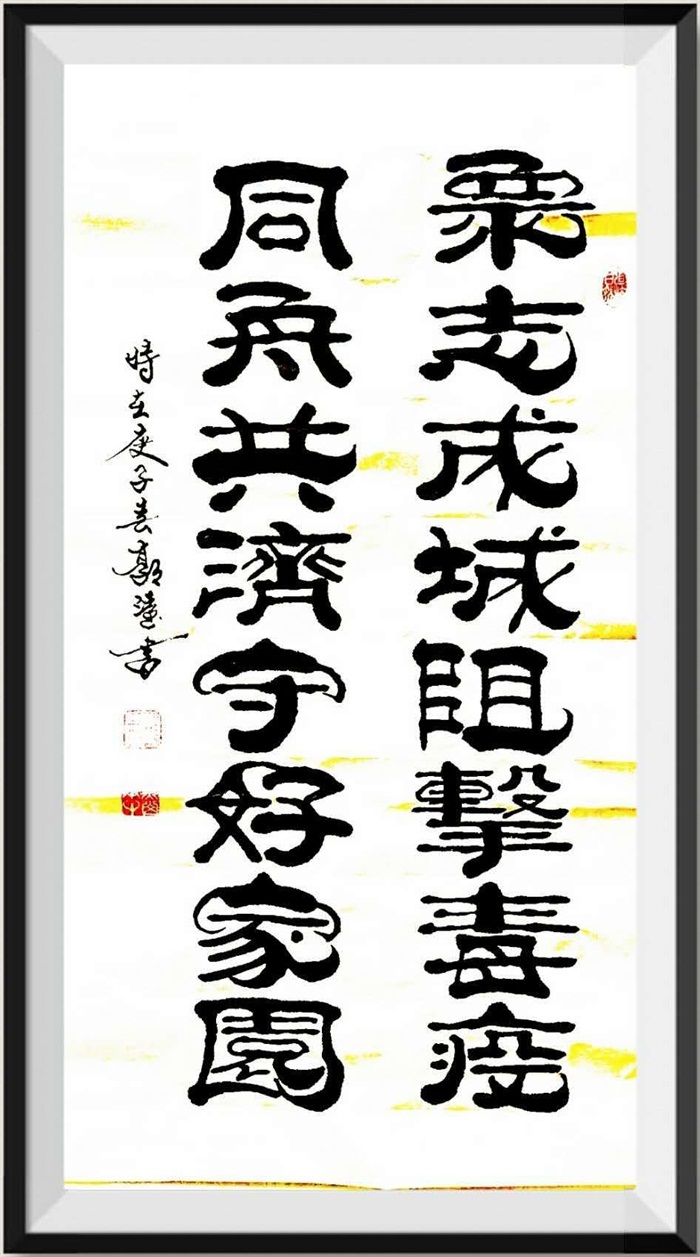 眾志成城阻擊毒疫
同舟共濟守好家園
時在庚子春郭蓮書